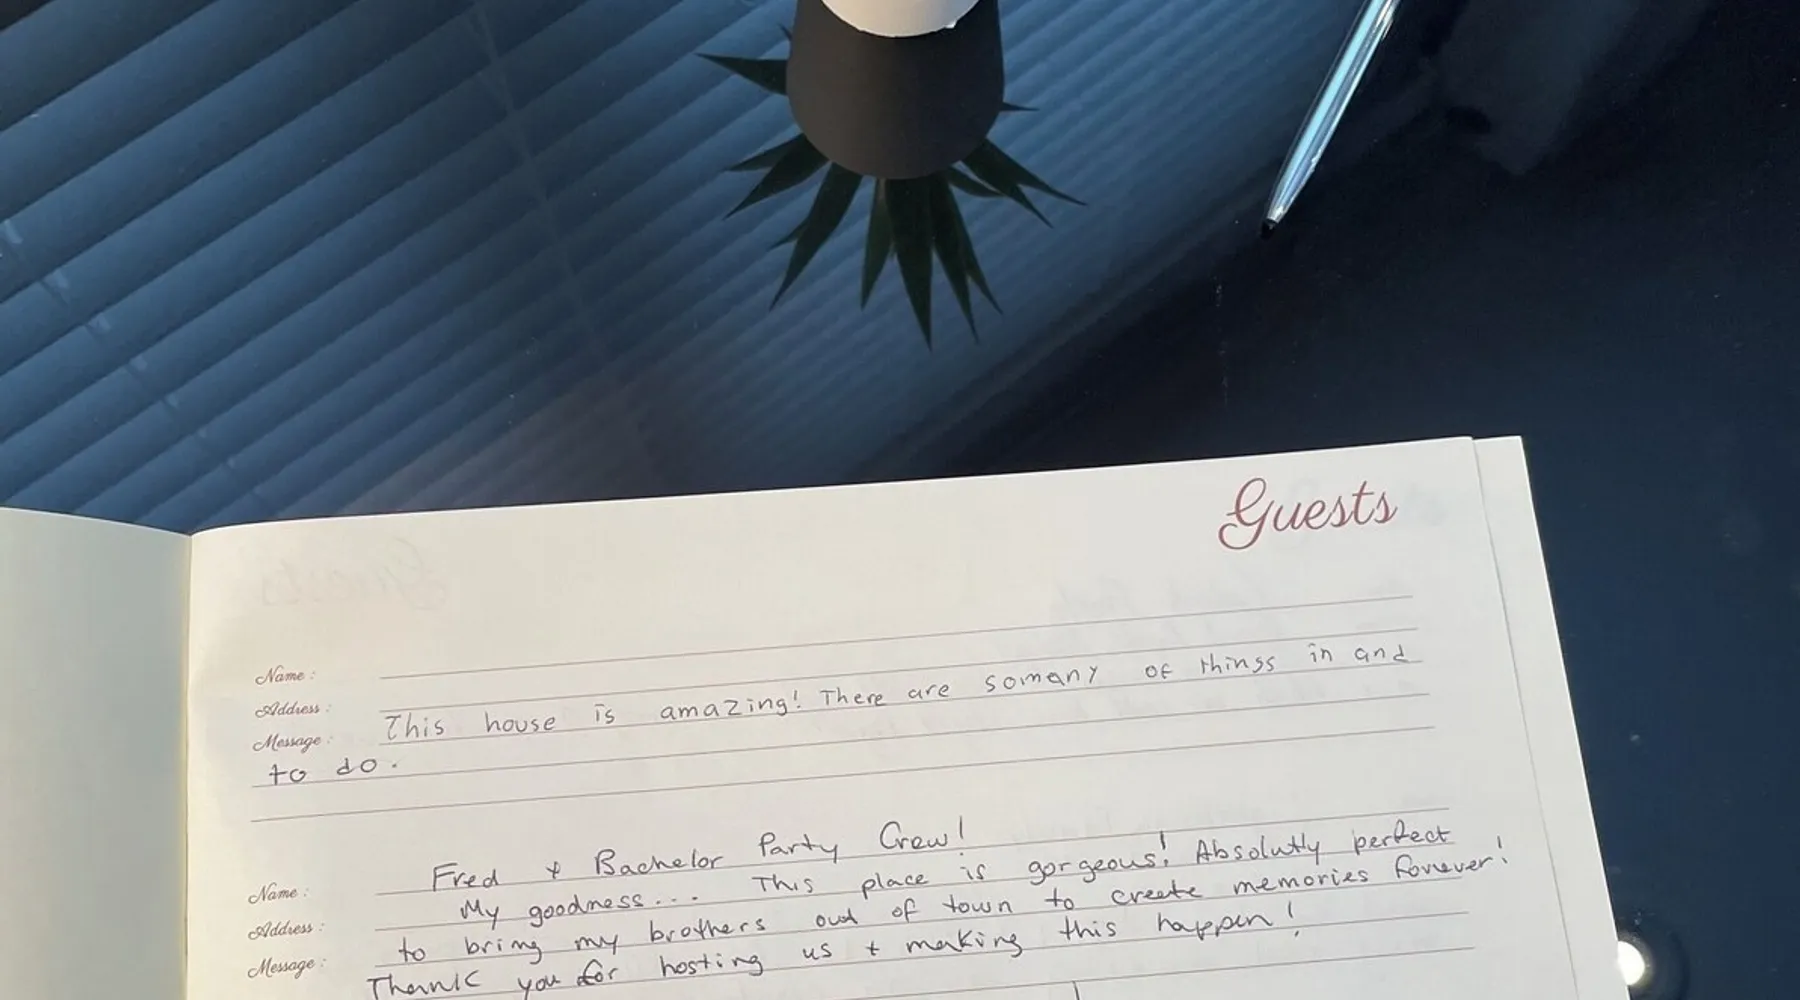 Guests
Name :
Address :
Message : This house is amazing! There are somany of things in and
to do.
Name : Fred + Bachelor Party Crew!
Address : My goodness... This place is gorgeous! Absolutly perfect
Message : to bring my brothers out of town to create memories forever!
Thank you for hosting us + making this happen!